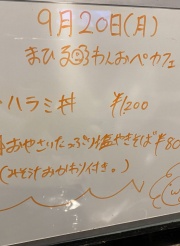 9月20日(月)
まひるのわんおぺカフェ
ハラミ丼 ¥1,200
おやさいたっぷり塩やきそば ¥80
(みそ汁おかわり付き。)